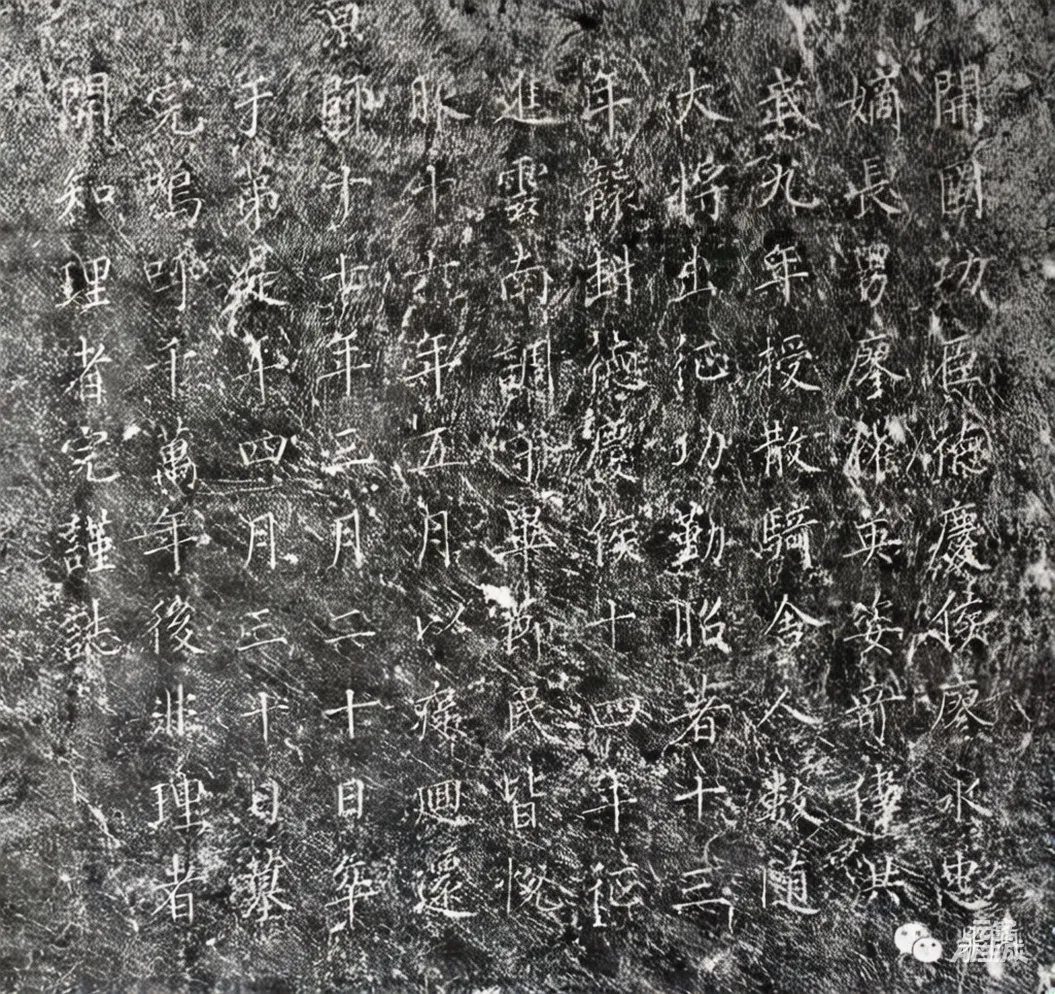 開國功臣德慶侯廖永忠
嫡長男廖權英姿奇偉洪
武九年授散騎舍人數随
大將出征功勤昭著十三
年襲封德慶侯十四年征
進雲南調守畢節民皆悅
服十六年五月以疾廻還
京師十七年三月二十日卒
于弟是年四月三十日墓
完嗚呼千萬年後非理者
開和理者完謹誌